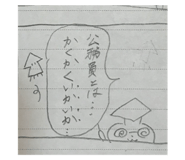 公務員とは…
かくかくいかいか…